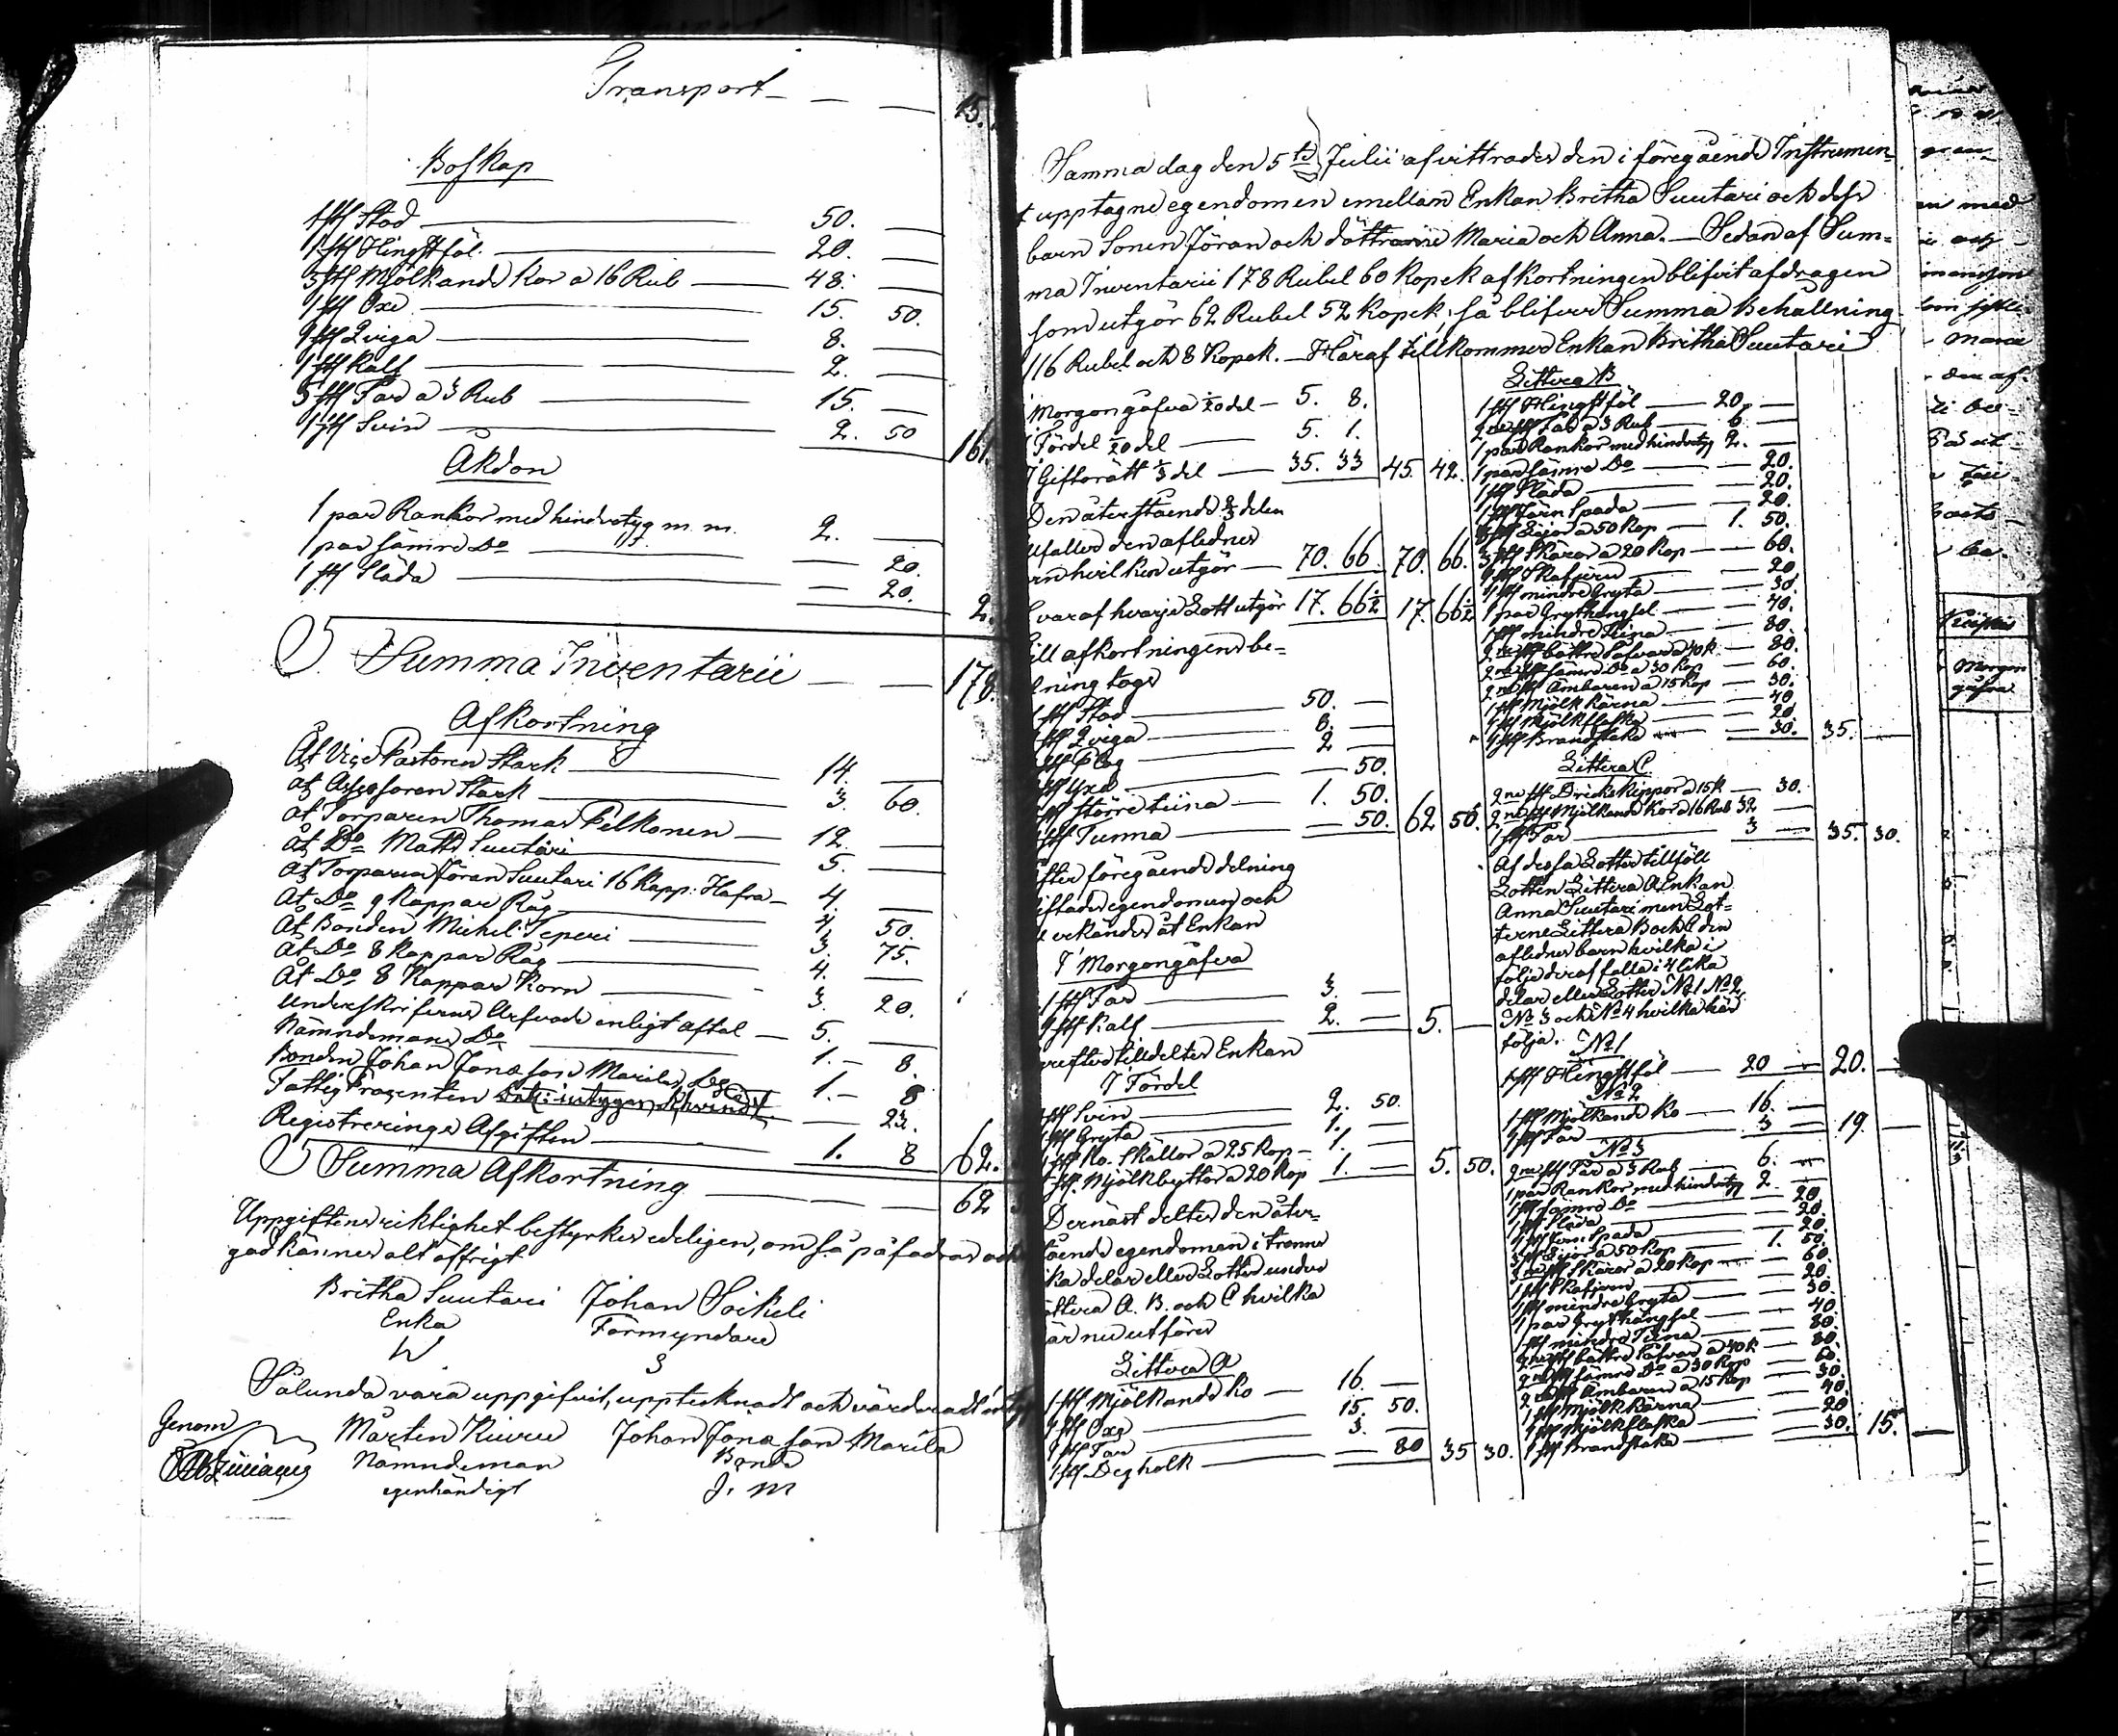 Transport — — — 15.
Boskap
1 st Stod — 50. —
1 st Hingstföl — 20. —
3 st Mjölkande Kor a 16 Rub — 48. —
1 st Oxe — 15. 50.
1 st Qviga — 8. —
1 st Kalf — 2. —
5 st Får a 3 Rub — 15. —
1 st Svin — 2. 50 161.
Åkdon
1 par Rankor med hindertyg m. m. 2. —
1 par sämre Do — — 20.
1 st Släda — — 20. 2.
Summa Inventarii — — 178.
Afkortning
Åt Vice Pastoren Stark — 14. —
åt Assessoren Stark — 3. 60.
åt Torparen Thomas Pelkonen — 12. —
åt Do Matts Suutari — 5. —
åt Torparen Jöran Suutari 16 Kapp. Hafra — 4. —
åt Do 9 Kappar Råg — 4. 50.
åt Bonden Michel Teperi — 3. 75.
åt Do 8 Kappar Råg — 4. —
åt Do 8 Kappar Korn — 3. 20.
Underskrifvens Arfvode enligt aftal — 5. —
Nämndemans Do — 1. — 8.
Bonden Johan Jonasson Marilas Do — 1. — 8
Fattig Procenten — 23.
Registrerings Afgiften — 1. 8 62.
Summa Afkortning — — 62
Uppgiftens riktighet bestyrkes edeligen, om så påfodras och
godkännes alt öffrigt
Britha Suutari Johan Soikeli
Enka Förmyndare
Sålunda vara uppgifvit, upptecknadt och värderadt
Genom Mårten Kiuru Johan Jonasson Marila
Nämndeman Bonde
egenhändigt J. M
Samma dag den 5te Julii afvittrades den i föregående Instrumen-
t upptagne egendomen emellan Enkan Britha Suutari och dess
barn Sonen Jöran och döttrarne Maria och Anna. — Sedan af Sum-
ma Inventarii 178 Rubel 60 Kopek afkortningen blifvit afdragen
som utgör 62 Rubel 52 Kopek, så blifver Summa Behållning
116 Rubel och 8 Kopek. — Häraf tillkommer Enkan Britha Suutari
Morgongåfva 1/20 del — 5. 8.
Fördel 1/20 del — 5. 1.
Giftorätt 1/3 del — 35. 33 45. 42.
Den återstående 2/3 delen
tilfaller den aflednes
barn hvilken utgör — 70. 66. 70. 66.
hvaraf hvarje Lott utgör 17. 66½ 17. 66½
Till afkortningens be-
talning togs
1 st Stod — 50. —
1 st Qviga — 8. —
1 st Plog — 2 —
1 st Yxa — 50.
1 st större tiina — 1. 50.
1 st Tunna — 50. 62 50.
Efter föregående delning
skiftades egendomen och
erkändes åt Enkan
I Morgongåfva
1 st Får — 3. —
1 st Kalf — 2. — 5. —
Derefter tilldeltes Enkan
I Fördel
1 st Svin — 2. 50.
1 st Gryta — 1. —
4 st Ko. Skällor a 25 Kop — 1. —
5 st. Mjölkbyttor a 20 Kop 1. — 5. 50.
Dernäst deltes den åter-
stående egendomen i trenne
lika delar eller Lotter under
Littera A. B. och C hvilka
här nu utföres
Littera A
1 st Mjölkande Ko — 16. —
1 st Oxe — 15. 50.
1 st Får — 3. —
1 st Deg holk — 80 35 30.
Littera B
1 st Hingstföl — 20. —
2ne st Får a 3 Rub — 6. —
1 par Rankor med hindertyg 2. —
1 par sämre Do — 20.
1 st Släda — 20.
1 st Järn Spada — 20.
3 st Lijor a 50 Kop — 1. 50.
3 st Skäror a 20 Kop — 60.
1 st Skafjern — 20
1 st mindre Gryta — 30.
1 par Grythängsel — 40.
1 st mindre Tiina — 80.
2ne st bättre Såfvar a 40 k — 80.
2ne st sämre Do a 30 Kop — 60.
2ne st Ämbaren a 15 Kop — 30.
1 st Mjölk Kärna — 40
1 st Mjölkflaska — 20.
1 st Brandstake — 30. 35. —
Littera C
2ne st Dricks Kippor a 15 k — 30.
2ne st Mjölkande Kor a 16 Rub 32 —
1 st Får — 3 — 35. 30.
Af dessa Lotter tillföll
Lotten Littera A Enkan
Anna Suutari men Lot-
terne Littera B och C den
aflednes barn hvilka i
följe deraf falla i 4 lika
delar eller Lotter No 1 No 2.
No 3 och No 4 hvilka här
följa.
No 1
1 st Hingstföl — 20 — 20. —
No 2
1 st Mjölkande Ko — 16. —
1 st Får — 3 — 19. —
No 3
2ne st Får a 3 Rub — 6. —
1 par Rankor med hindertyg 2. —
1 st sämre Do — 20
1 st Släda — 20.
1 st Jern Spada — 20.
3 st Lijor a 50 Kop — 1. 50.
3ne st Skäror a 20 Kop — 60.
1 st Skafjern — 20
1 st mindre Gryta — 30.
1 par Grythängsel — 40.
1 st mindre Tiina — 80.
2ne st bättre Såfvar a 40 k — 80.
2ne st sämre Do a 30 Kop — 60.
2ne st Ämbaren a 15 Kop — 30.
1 st Mjölk Kärna — 40.
1 st Mjölkflaska — 20
1 st Brandstake — 30. 15. —